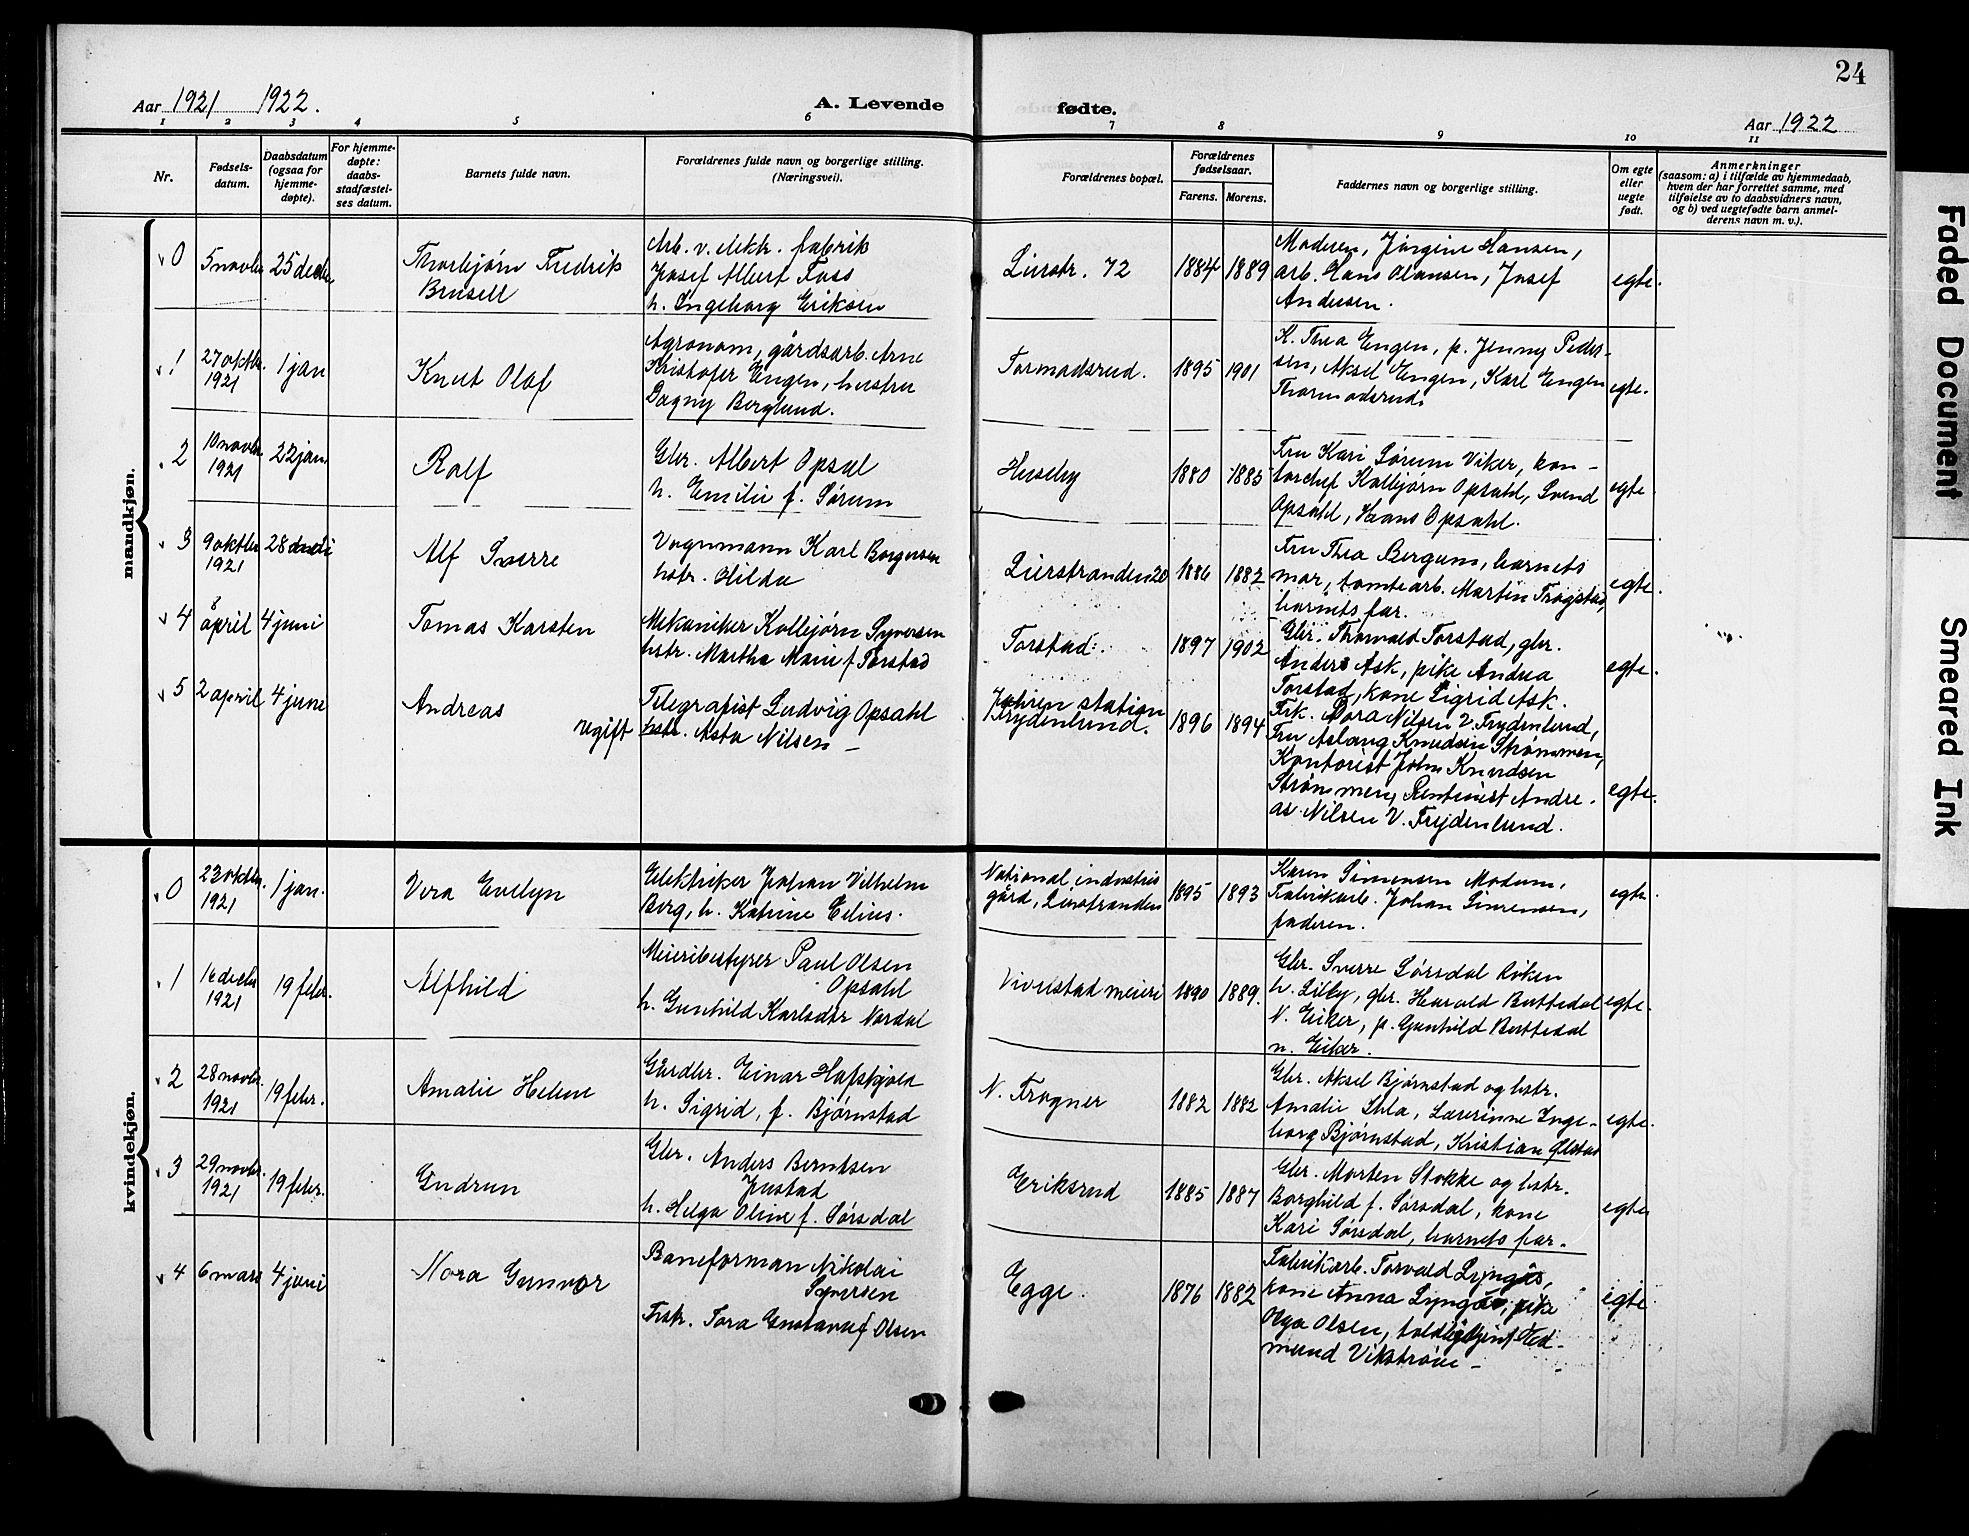 24
Aar 1921 1922.
A. Levende
fødte.
Aar 1922
1 2 3 4 5 6 7 8 9 10 11
Nr.
Fødsels-
datum.
Daabsdatum
(ogsaa for
hjemme-
døpte).
For hjemme-
døpte:
daabs-
stadfæstel-
ses datum.
Barnets fulde navn.
Forældrenes fulde navn og borgerlige stilling.
(Næringsvei).
Forældrenes bopæl.
Forældrenes
fødselsaar.
Farens. Morens.
Faddernes navn og borgerlige stilling.
Om egte
eller
uegte
født.
Anmerkninger
(saasom: a) i tilfælde av hjemmedaab,
hvem der har forrettet samme, med
tilføielse av to daabsvidners navn,
og b) ved uegtefødte barn anmel-
derens navn m. v.).
mandkjøn.
0
5 novbr
25 decbr.
Thorbjørn Fredrik
Brusell
Arb. v. elektr. fabrik
Josef Albert Foss
h. Ingeborg Eriksen
Lierstr. 72
1884
1889
Moderen, Jørgine Hansen,
arb. Hans Olausen, Josef
Andersen.
egte.
1
27 oktbr.
1921
1 jan
Knut Olaf
Agronom, gårdsarb. Arne
Kristofer Engen, hustru
Dagny Berglund.
Tormodsrud.
1895
1901
K. Thea Engen, p. Jenny Peder-
sen, Aksel Engen, Karl Engen
Thormodsrud.
egte.
2
10 novbr.
1921
22 jan.
Rolf
Gbr. Albert Opsal
h. Emilie f. Sørum
Huseby
1880
1885
Fru Kari Sørum Viker, kon-
torchef Kolbjørn Opsahl, Svend
Opsahl, Hans Opsahl.
egte.
3
9 oktbr
1921
28
Alf Sverre
Vognmann Karl Borgersen
hstr. Hilda
Lierstranden 20
1886
1882
Fru Thea Bergum, barnets
mor, tomtearb. Martin Frogstad,
barnets far.
egte.
4
8
april
4 juni
Tomas Karsten
Mekaniker Kolbjørn Syversen
hstr. Martha Marie f Torstad
Torstad.
1897
1902
Gbr. Thorvald Torstad, gbr.
Anders Ask, pike Andrea
Torstad, kone Sigrid Ask.
egte.
5
2 april
4 june
Andreas
Ugift
Telegrafist Ludvig Opsahl
hstr. Asta Nilsen –
station
Frydenlund.
1896
1894
Frk. Dora Nilsen V. Frydenlund,
Fru Aslaug Knudsen Strømmen,
Kontorist John Knudsen
Strømmen, Rentenist Andre-
as Nilsen V. Frydenlund.
egte.
kvindekjøn.
0
23 oktbr.
1921
1 jan.
Vera Evelyn
Elektriker Johan Vilhelm
Berg, h. Katrine Eilius.
National industris
gård, Lierstranden
1895
1893
Karen Simensen Modum,
Fabrikarb. Johan Simensen,
faderen.
egte.
1
16 decbr
1921
19 febr.
Alfhild
Meieribestyrer Paul Olsen
Opsahl
h. Gunhild Karlsdtr Nordal
Vivelstad meieri
1890
1889.
Gbr. Sverre Sørsdal Röken
h. Lilly, gbr. Harald Buttedal
N. Eiker, p. Gunhild Buttedal
n. Eiker.
egte.
2
28 novbr.
1921
19 febr.
Amalie Helene
Gårdbr. Einar Hafskjold
h. Sigrid, f. Bjørnstad
N. Frogner
1882
1882
Gbr. Aksel Bjørnstad og hstr.
Amalie Lhla, Lærerinne Inge-
borg Bjørnstad, Kristian Ølstad
egte.
3
29 novbr.
1921
19 febr.
Gudrun
Gbr. Anders Berntsen
Justad
h. Helga Oline f. Sørsdal
Eriksrud
1885
1887
Gbr. Morten Stokke og hstr.
Borghild f. Sørsdal, kone
Kari Sørsdal, barnets far.
egte
4
6 mars
4 juni
Nora Gunvor
Baneforman Nikolai
Syversen
Frstr. Tora Gustava f Olsen
Egge.
1876
1882
Fabrikarb. Torvald Lyngås,
kone Anna Lyngås, pike
Olga Olsen,
Vikstrøm –
egte
Faded Document
Smeared Ink